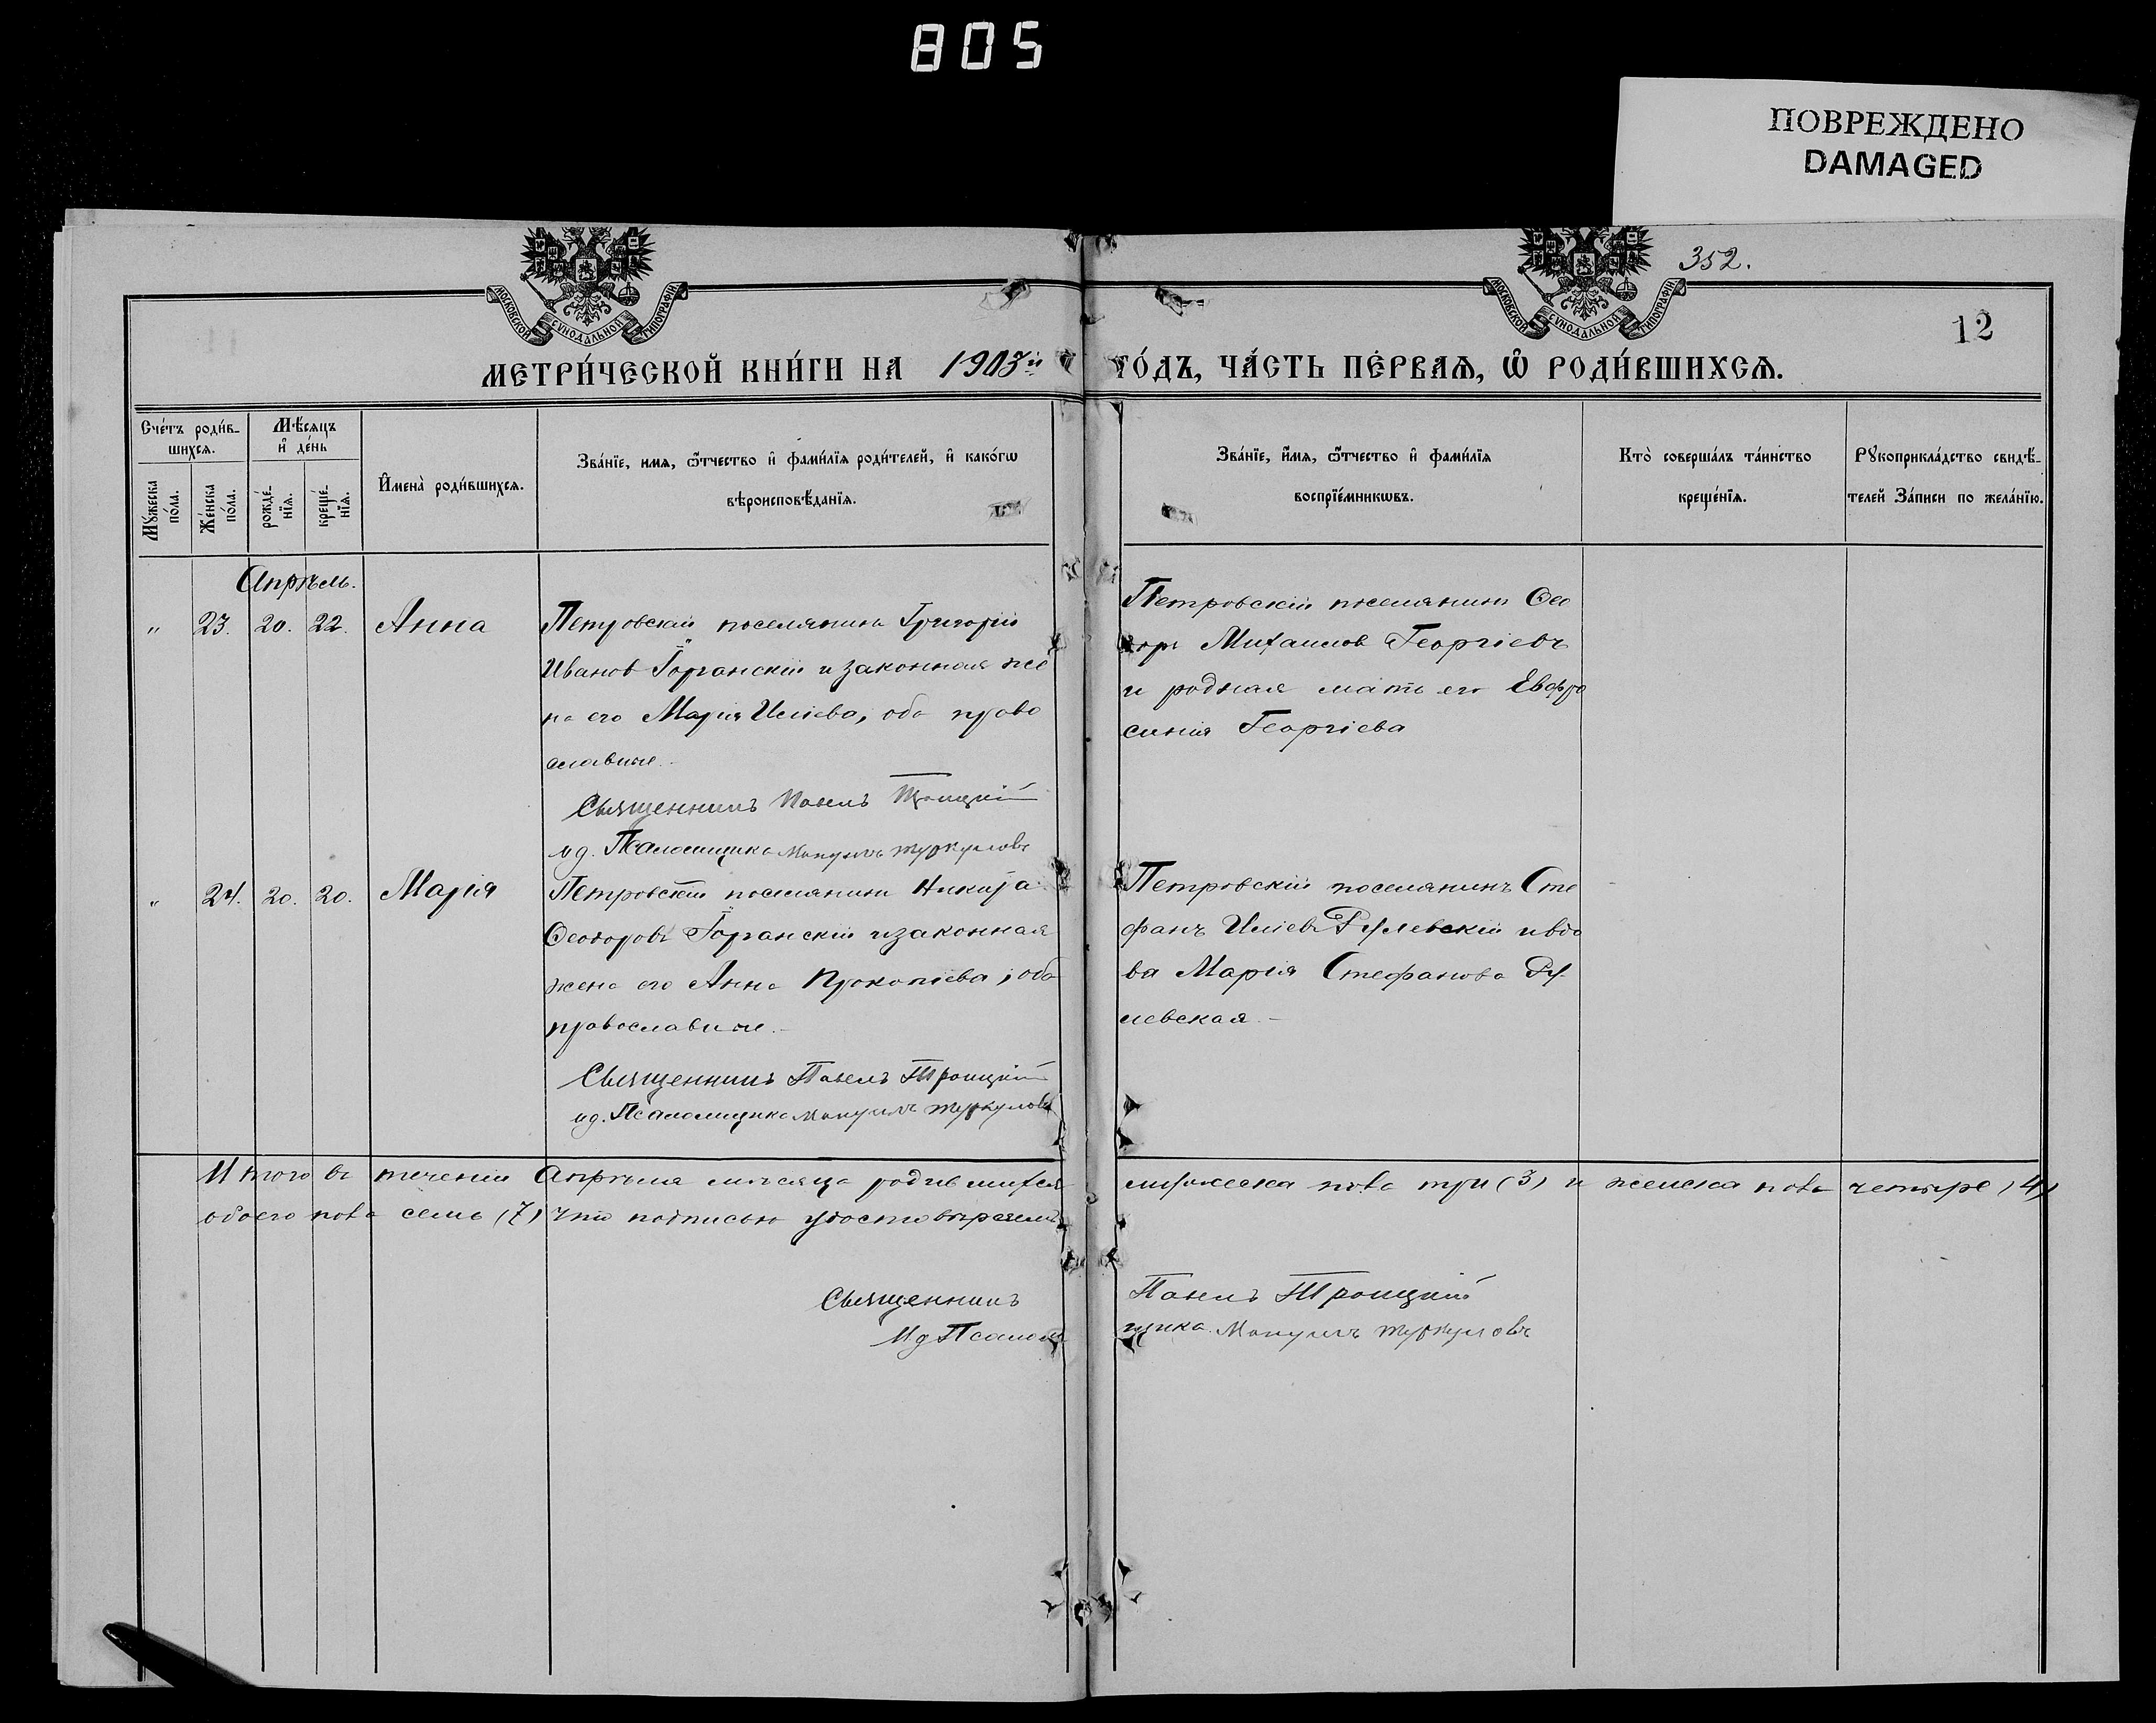 805
ПОВРЕЖДЕНО
DAMAGED
352.
МОСКОВСКОЙ СѴНОДАЛЬНОЙ ТИПОГРАФІИ
МОСКОВСКОЙ СѴНОДАЛЬНОЙ ТИПОГРАФІИ
12
МЕТРИ́ЧЕСКОЙ КНИ́ГИ НА 1903й ГО́ДЪ, ЧА́СТЬ ПЕ́РВАѦ, Ѡ҆ РОДИ́ВШИХСѦ.
Сче́тъ роди́в-
шихсѧ.
Мѣ́сѧцъ
и҆ де́нь
Мꙋ́жеска
по́ла.
Же́нска
по́ла.
рожде́-
нїѧ.
креще́-
нїѧ.
И҆мена̀ роди́вшихсѧ.
Зва́нїе, имѧ, ѻ҆́тчество и҆ фами́лїѧ роди́телей, и҆ како́гѡ
вѣроисповѣ́данїѧ.
Зва́нїе, и҆́мѧ, ѻ҆́тчество и҆ фами́лїѧ
воспрїе́мникѡвъ.
Кто̀ соверша́лъ та́инство
креще́нїѧ.
Рꙋкоприкла́дство свидѣ́-
телей За́писи по жела́нїю.
Апрѣль.
„ 23. 20. 22. Анна
Петровскій поселянинъ Григорій
Иванов Горганскій и законная же
на его Марія Иліева, оба право
славные.
Священникъ Павелъ Троицкій
ид. Псаломщика Мануилъ Туркуловъ
Петровскій поселянинъ Ѳео
доръ Михаилов Георгіевъ
и родная мать его Евфро
синія Георгіева
„ 24. 20. 20. Марія
Петровскій поселянинъ Никита
Ѳеодоровъ Горганскій и законная
жена его Анна Прокопіева, оба
православные.
Священникъ Павелъ Троицкій
ид. Псаломщика Мануилъ Туркуловъ
Петровскій поселянинъ Сте
фанъ Иліевъ Рулевскій и вдо
ва Марія Стефанова Ру
левская
Итого въ теченіи Апрѣля мѣсяца родившихся мужеска пола три (3) и женска пола четыре (4)
обоего пола семь (7) что подписью удостовѣряемъ
Священникъ Павелъ Троицкій
Ид Псаломщика Мануилъ Туркуловъ